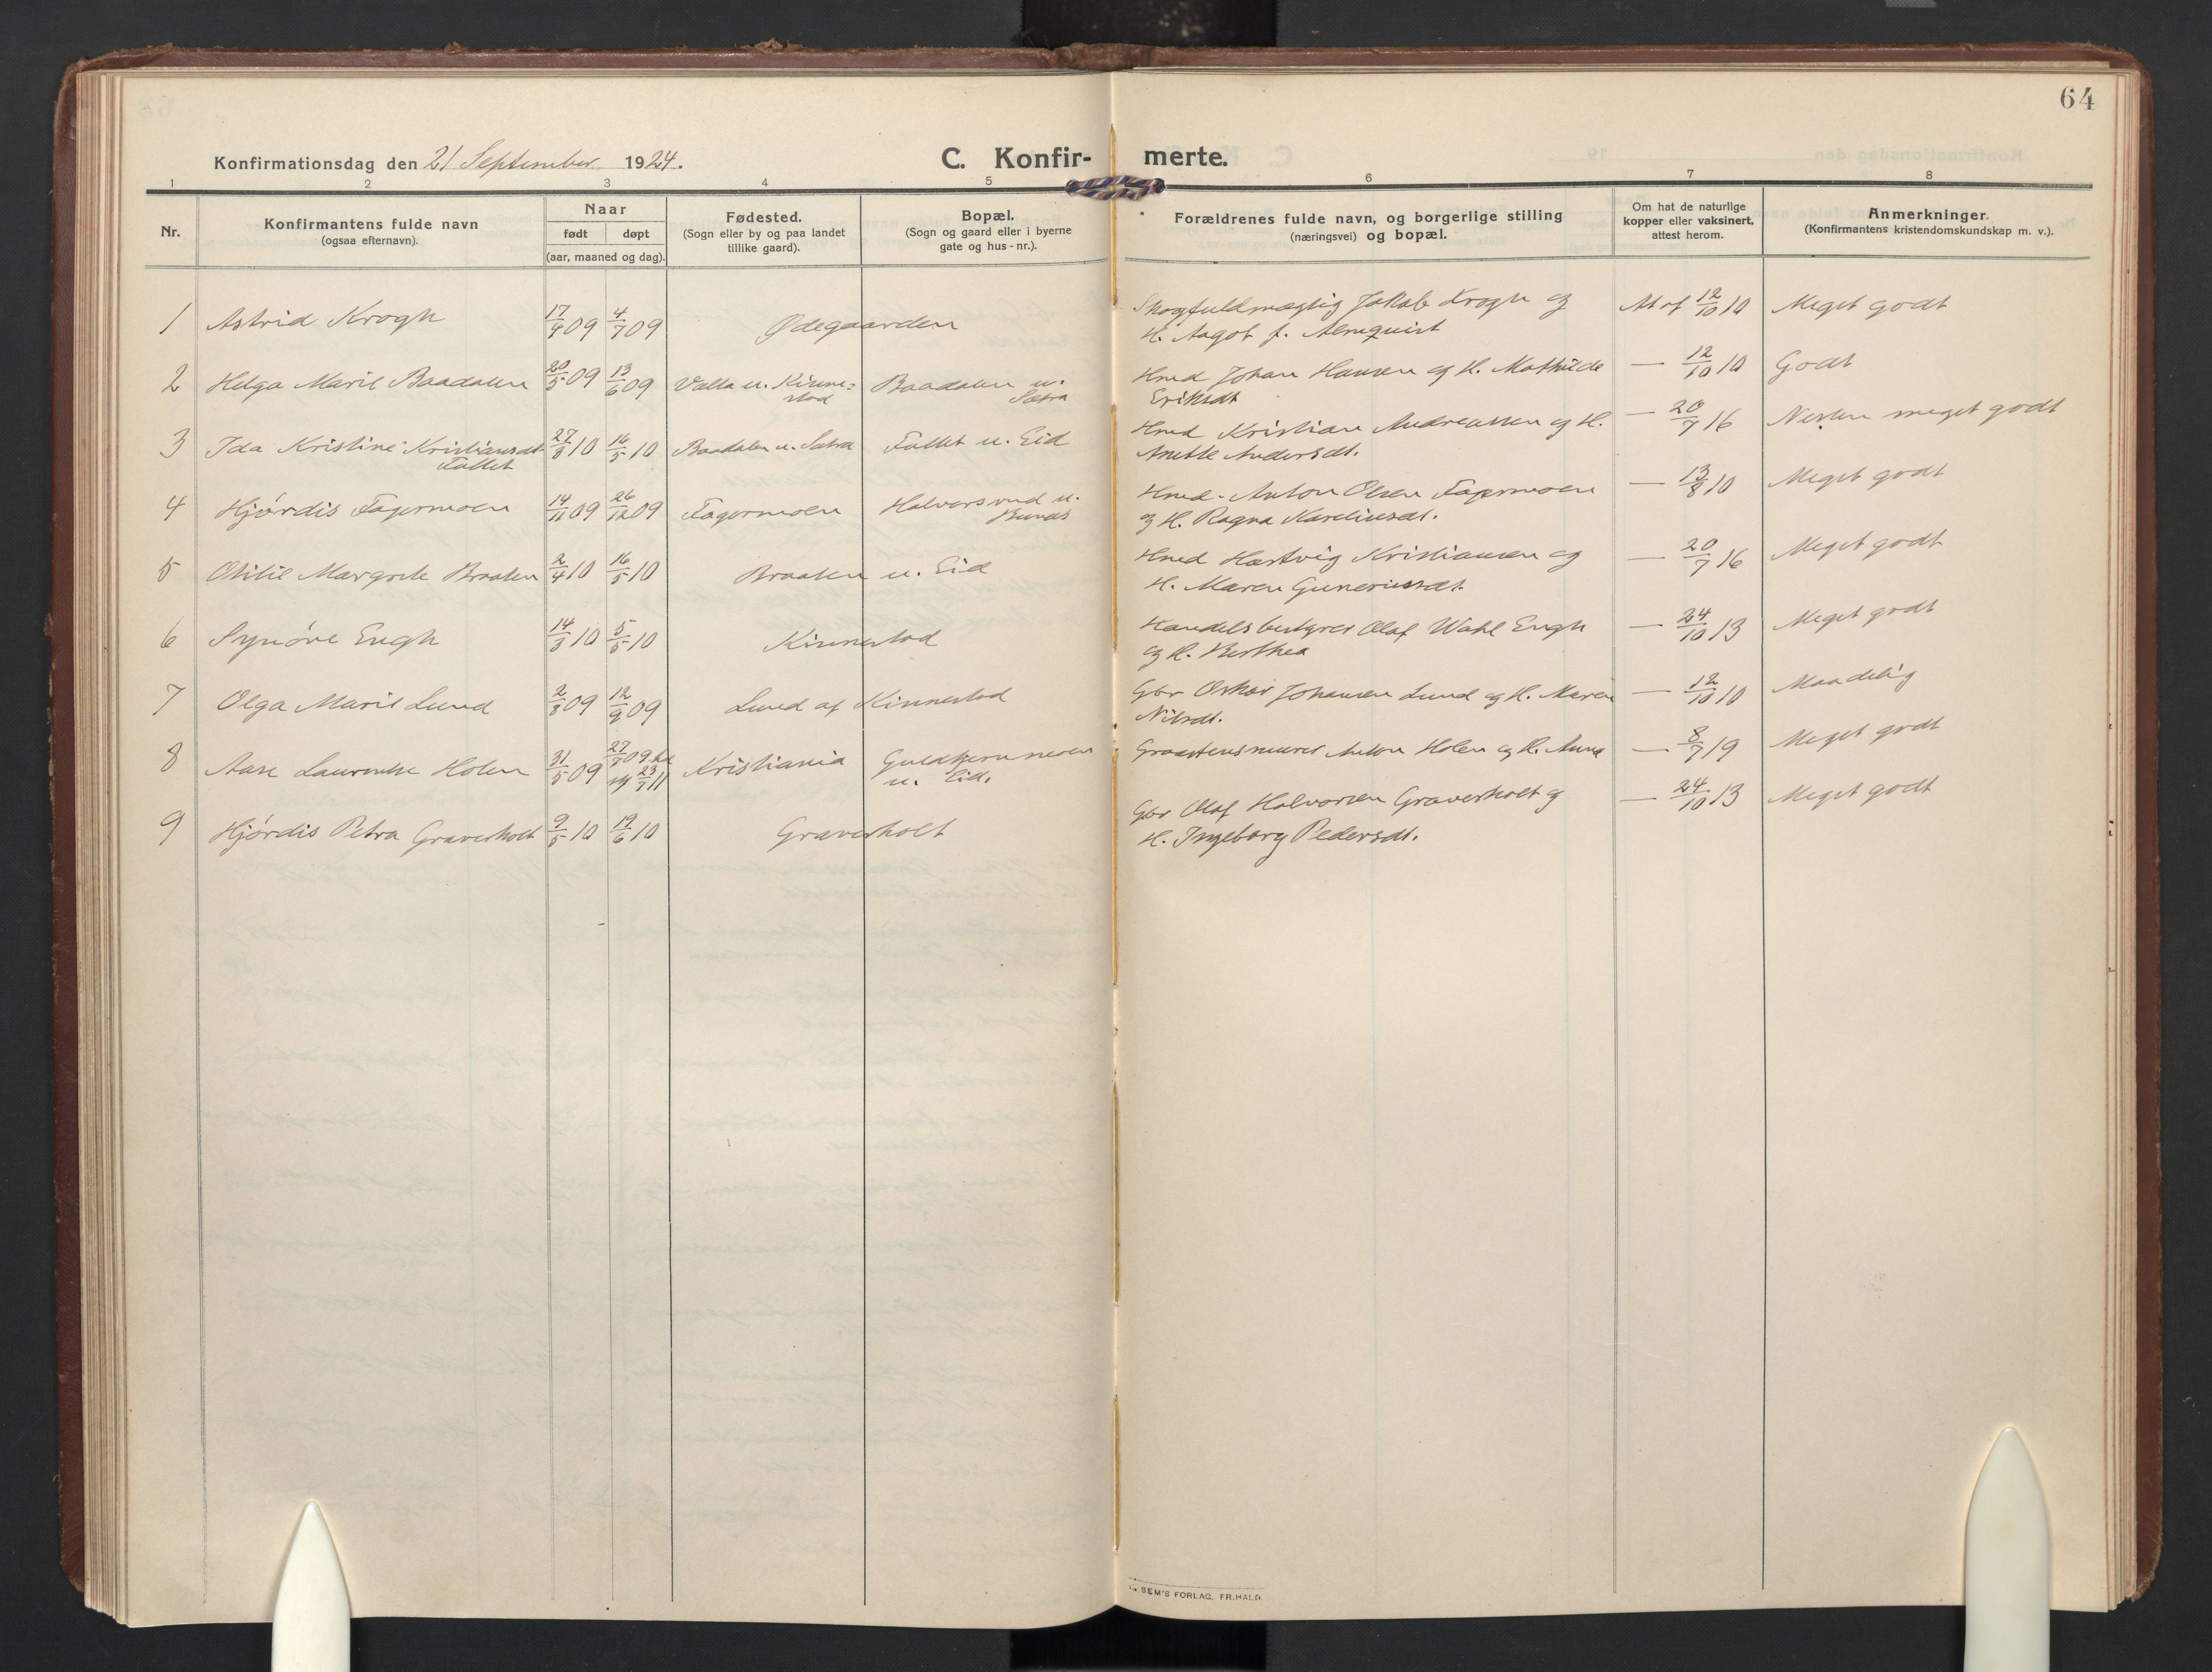 64
Konfirmationsdag den 21 September 1924.
C. Konfir- merte.
1 2 3 4 5 6 7 8
Nr.
Konfirmantens fulde navn
(ogsaa efternavn).
Naar
født døpt
(aar, maaned og dag).
Fødested.
(Sogn eller by og paa landet
tillike gaard).
Bopæl.
(Sogn og gaard eller i byerne
gate og hus-nr.).
Forældrenes fulde navn, og borgerlige stilling
(næringsvei) og bopæl.
Om hat de naturlige
kopper eller vaksinert,
attest herom.
Anmerkninger.
(Konfirmantens kristendomskundskap m. v.).
1 Astrid Krogh 17/4 09 4/7 09 Ødegaarden Skogfuldmægtig Jakob Krogh og At af 12/10 10 Meget godt
H. Aagot f. Almquist
2 Helga Marie Baadalen 20/5 09 13/6 09 Valla u. Kinne= Baadalen u. Hmd Johan Hansen og H. Mathilde — 12/10 10 Godt
stad Sætra Eriksdt
3 Ida Kristine Kristiansdt. 27/3 10 16/5 10 Baadalen u. Sætra Fallet u. Eid Hmd Kristian Andreassen og H. — 20/7 16 Nesten meget godt
Fallet Anette Andersdt.
4 Hjørdis Fagermoen 14/11 09 26/12 09 Fagermoen Halvorsrud u. Hmd. Anton Olsen Fagermoen — 13/8 10 Meget godt
og H. Ragna Kareliusdt.
5 Otilie Margrete Braaten 2/4 10 16/5 10 Braaten u. Eid Hmd Hartvig Kristiansen og — 20/7 16 Meget godt
H. Maren Guneriusdt.
6 Synöve Engh 14/3 10 5/5 10 Kinnestad Handelsbestyrer Olaf Wahl Engh — 24/10 13 Meget godt
og H. Berthea
7 Olga Marie Lund 2/8 09 12/9 09 Lund af Kinnestad Gbr Oskar Johansen Lund og H. Maren — 12/10 10 Maadelig
Nilsdt.
8 Aase Laurentse Holen 31/5 09 27/7 09 23/7 11 Kristiania Guldkjernmoen Graastensmurer Anton Holen og H. Anna — 8/7 19 Meget godt
u. Eid.
9 Hjørdis Petra Graverholt 9/5 10 19/6 10 Graverholt Gbr Olaf Halvorsen Graverholt og — 24/10 13 Meget godt
H. Ingeborg Pedersdt.
SEM'S FORLAG, FR.HALD.